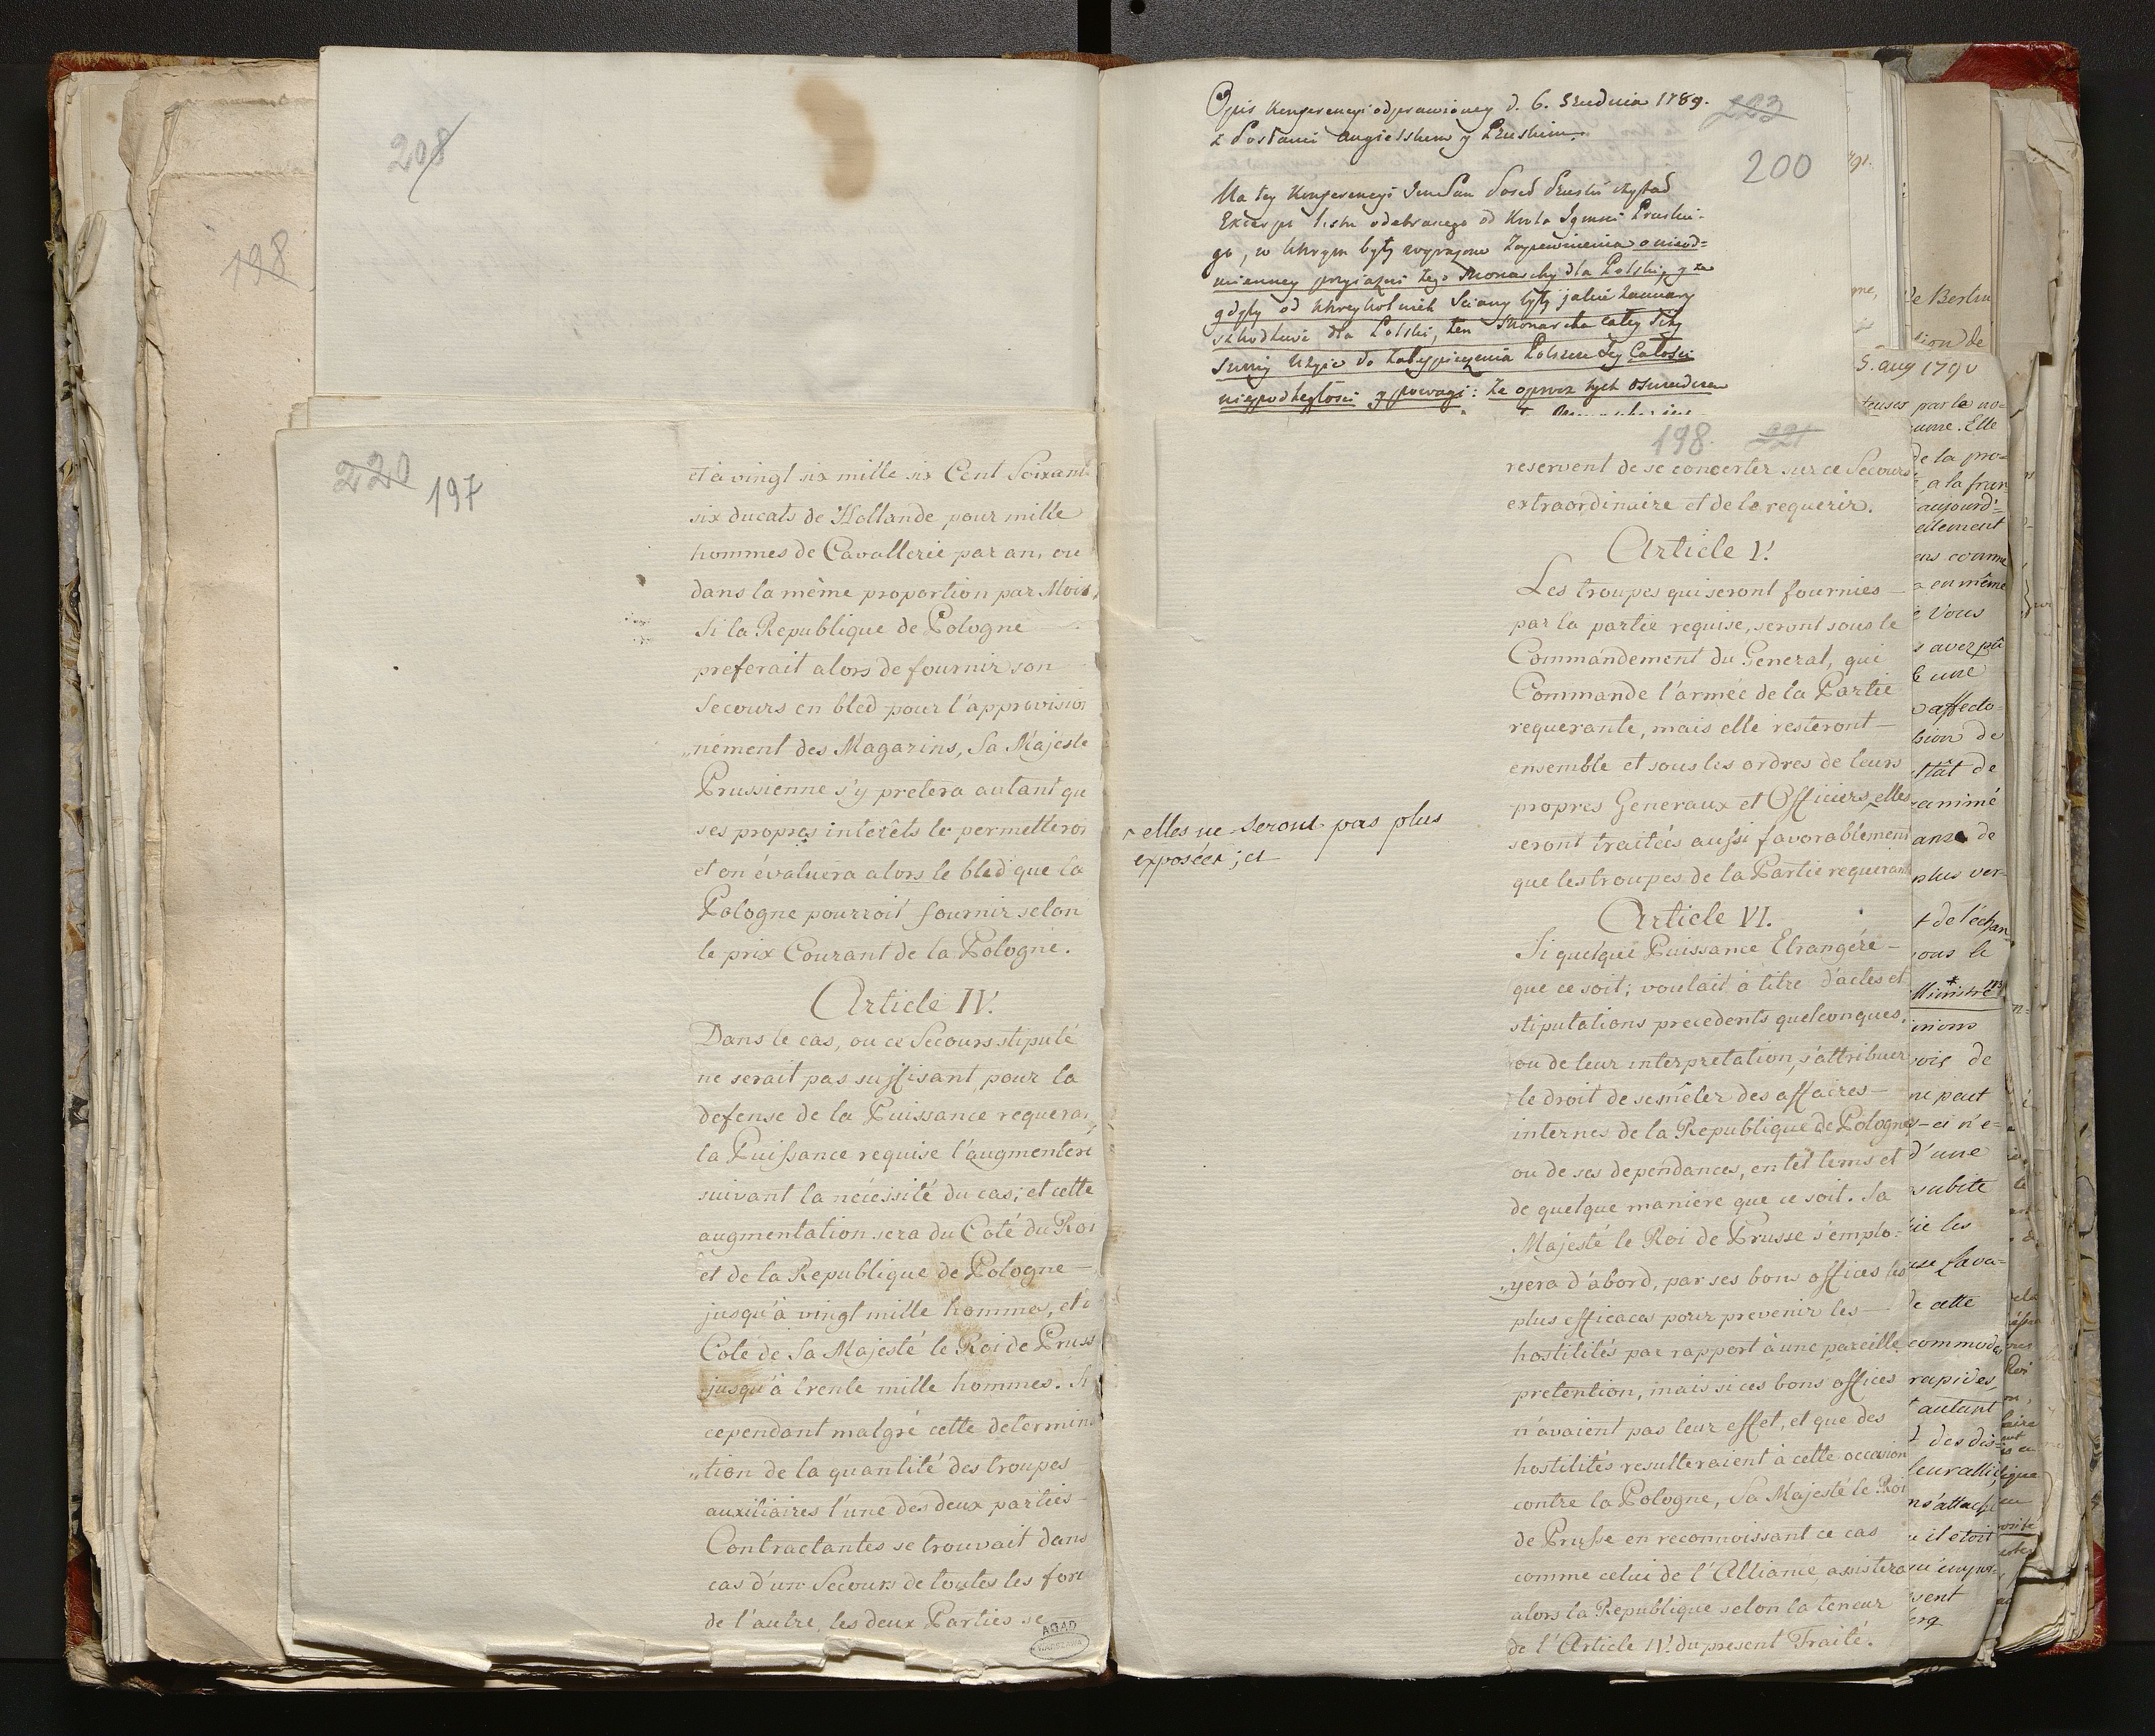 208
198
220
197
et à vingt six mille six Cent Soixant
six ducats de Hollande pour mille
hommes de Cavallerie par an, ou
dans la même proportion par Mois,
Si la Republique de Pologne
preferait alors de fournir son
Secours en bled pour l'approvision
„nément des Magazins, Sa Majeste
Prussienne s'y pretera autant qu
ses propres interêts le permetteroi
et on évaluera alors le bled que la
Pologne pourroit fournir selon
le prix Courant de la Pologne.
Article IV.
Dans le cas, ou ce Secours stipulé
ne serait pas suffisant pour la
defense de la Puissance requeran
la Puissance requise l'augmentera
suivant la nécessité du cas; et cette
augmentation sera du Coté du Roi
et de la Republique de Pologne —
jusqu'à vingt mille hommes, et d
Coté de Sa Majesté le Roi de Pruss
jusqu'à trente mille hommes. Si
cependant malgré cette determina
„tion de la quantité des troupes —
auxiliaires l'une des deux parties —
Contractantes se trouvait dans
cas d'un Secours de toutes les forc
de l'autre, les deux Parties se
AGAD
WARSZAWA
Opis Konferencyi odprawioney d. 6. Grudnia 1789.
z Posłami Angielskim y Pruskim.
223
200
Na tey Konferencyi Jmć Pan Poseł Pruski czytał
Excerpt listu odebranego od Krola Jgmci Pruskie-
go, w którym były wyrażone Zapewnienia o nieod=
mienney przyiazni tego Monarchy dla Polski, y ze
gdyby od którey kolwiek Sciany były jakie Zamiary
szkodliwe dla Polski, ten Monarcha całey Siły
swoiey użyie do Zabespieczenia Polszcze Jey Całości
niepodległości y powagi: że oprocz tych oświadczen
198. 221
reservent de se concerter sur ce Secours
extraordinaire et de le requerir.
Article V.
Les troupes qui seront fournies —
par la partie requise, seront sous le
Commandement du General, qui
Commande l'armée de la Partie
requerante, mais elle resteront —
ensemble et sous les ordres de leurs
propres Generaux et Officiers, elles
seront traitées aussi favorablement
que les troupes de la Partie requerant
elles ne seront pas plus
exposées; et
Article VI.
Si quelque Puissance Etrangére —
que ce soit; voulait à titre d'actes et
stipulations precedents quelconques,
ou de leur interpretation, s'attribuer
le droit de se mêler des affaires —
internes de la Republique de Pologne
ou de ses dependances, en tel tems et
de quelque maniere que ce soit. Sa
Majesté le Roi de Prusse s'emplo=
„yera d'abord, par ses bons offices les
plus efficaces pour prevenir les —
hostilités par rapport à une pareille
pretention, mais si ces bons offices
n'avaient pas leur effet, et que des
hostilités resulteraient à cette occasion
contre la Pologne, Sa Majesté le Roi
de Prusse en reconnoissant ce cas
comme celui de l'Alliance, assistera
alors la Republique selon la teneur
de l'Article IV. du present Traité.
de Berlin
tion de
5. aug 1790
teuses par le no=
Elle
de la pro=
a la fran
aujourd'=
ellement
ens comme
en même
Vous
avez pû
une
affecto=
sion de
ttât de
animé
de
plus ver-
de l'échan
ous le
Ministre
inions
de
ne peut
ci n'e=
d'une
subite
les
de cette
commode
rapides
autant
des dis=
leur alli
s'attach
il etoit
qu'empor=
sent